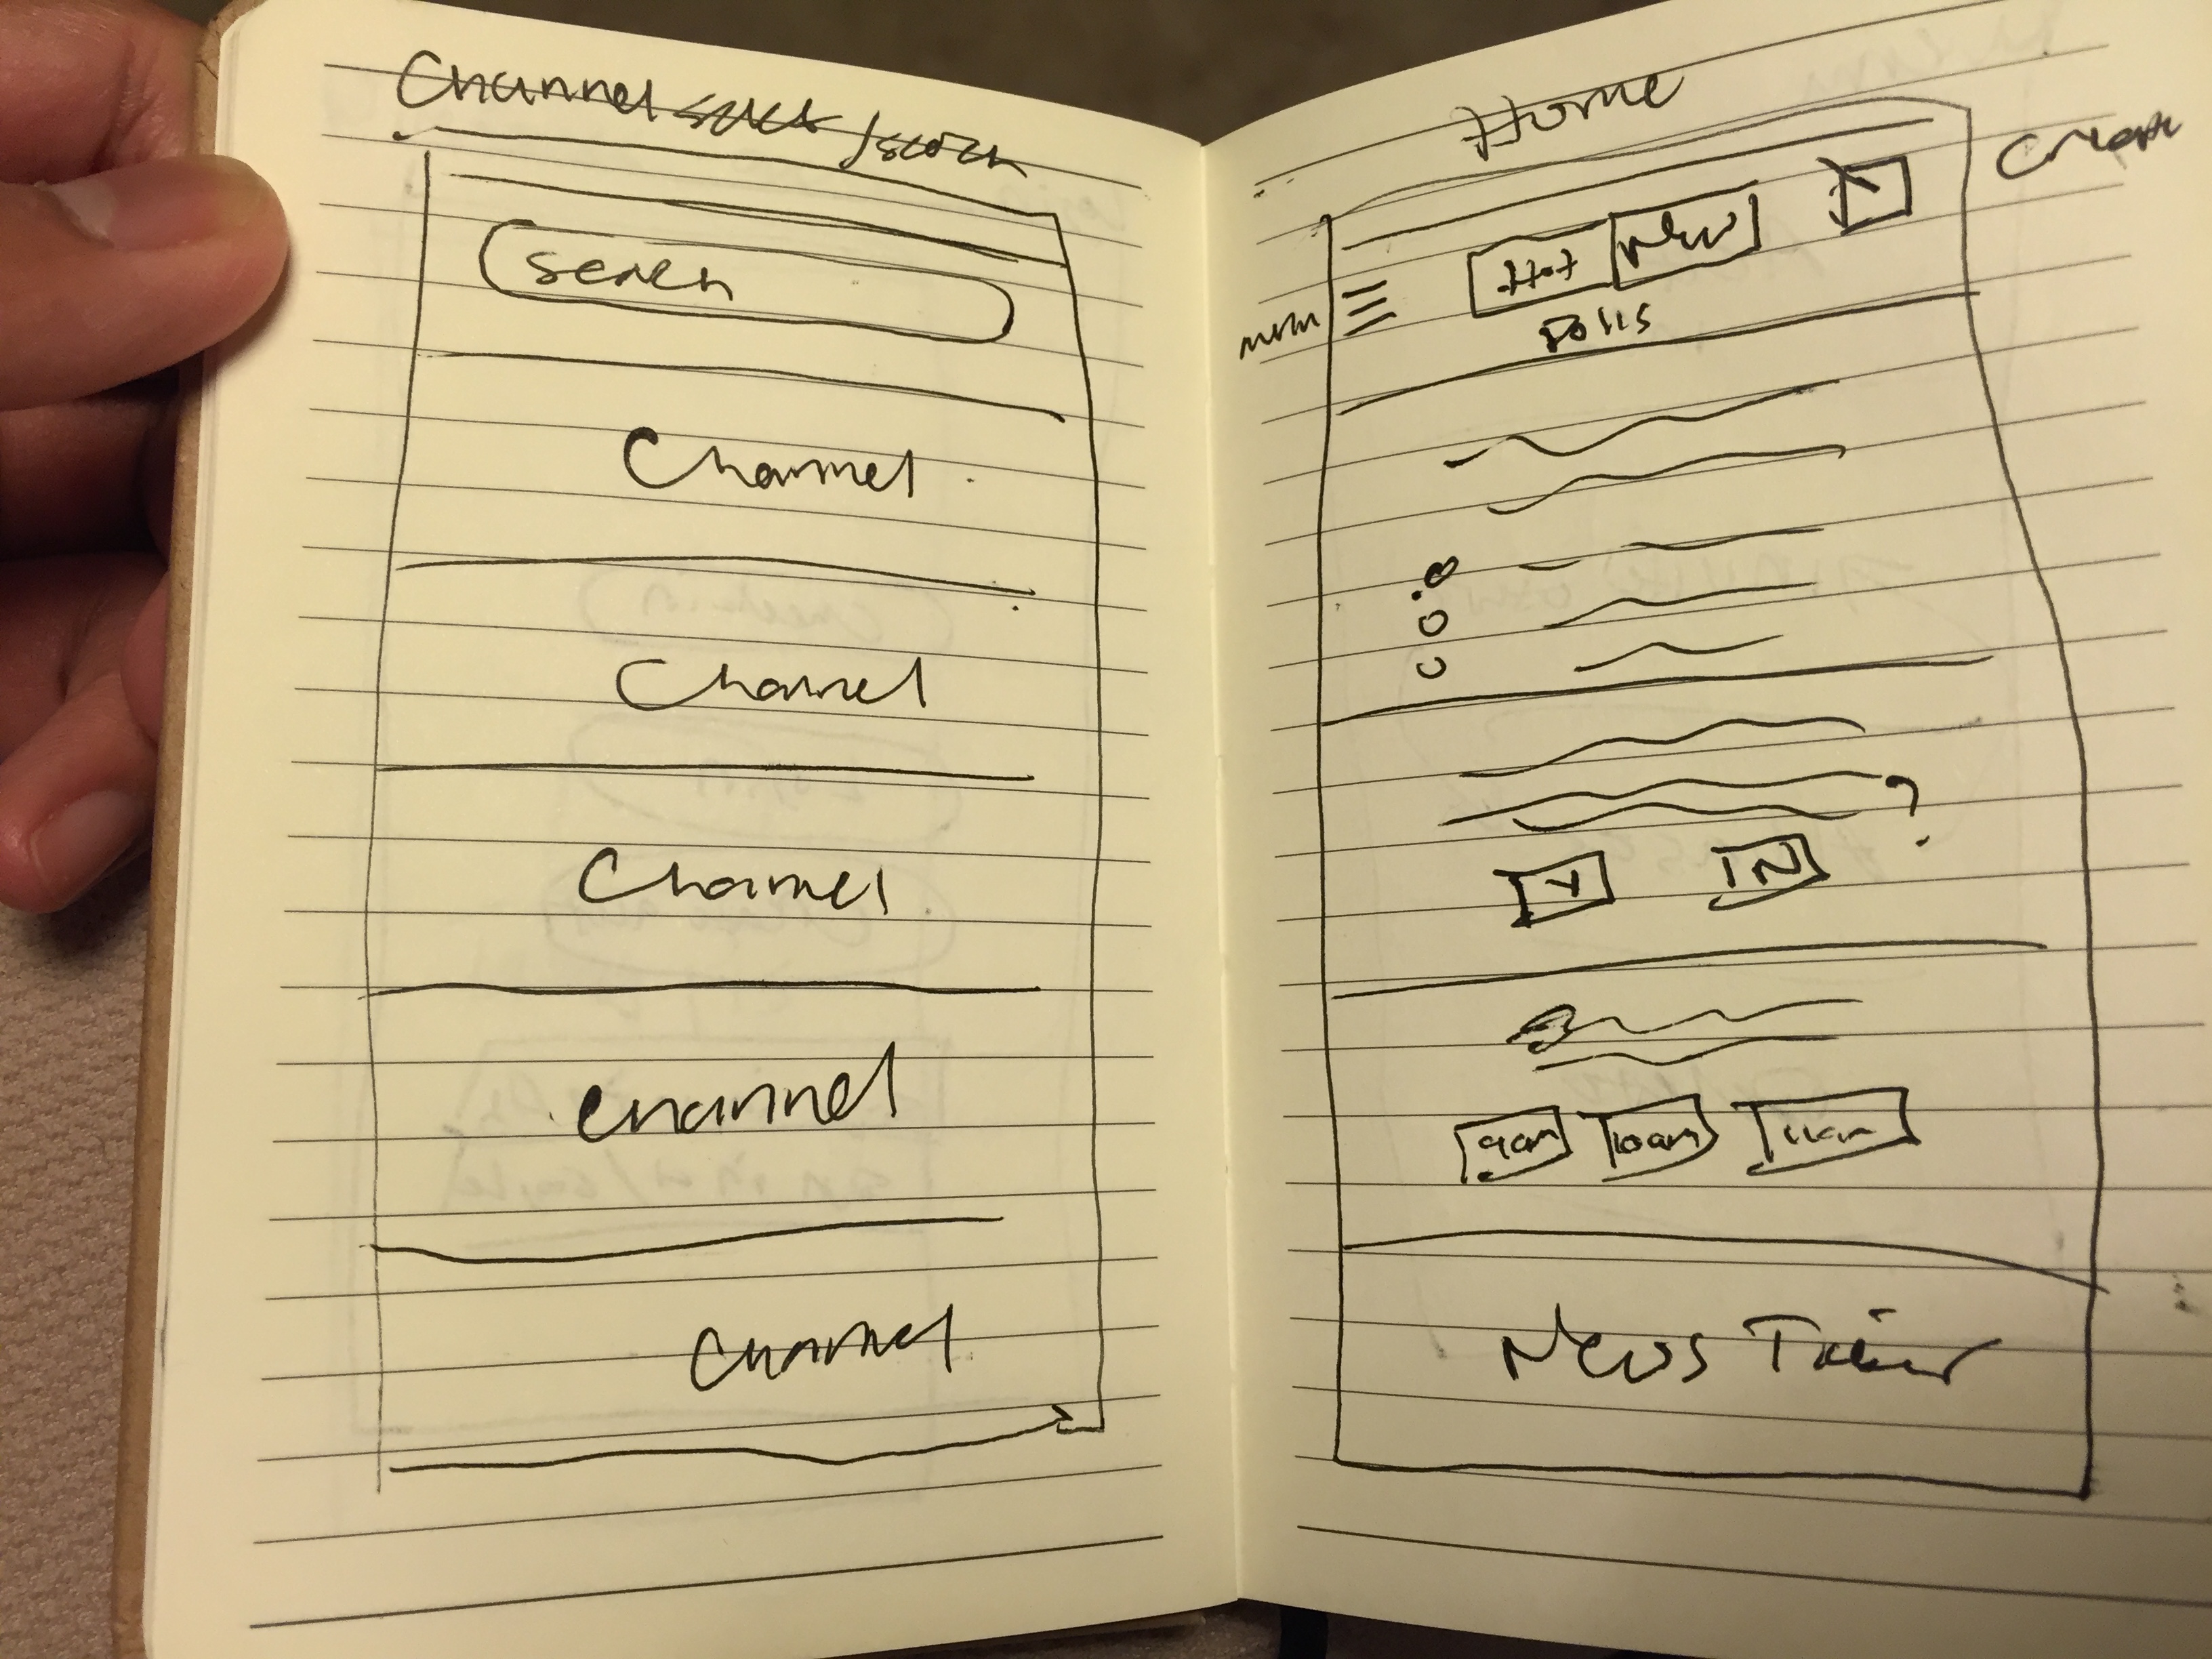 Channel /search
search
Channel
Channel
Channel
Channel
Channel
Home
Create
Hot New
menu
Polls
?
Y N
9am 10am 11am
News